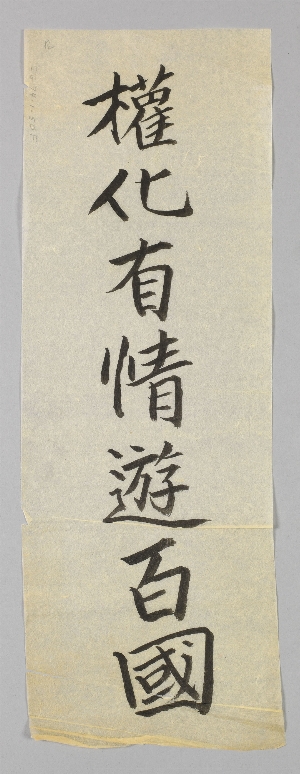 權化有情遊百國